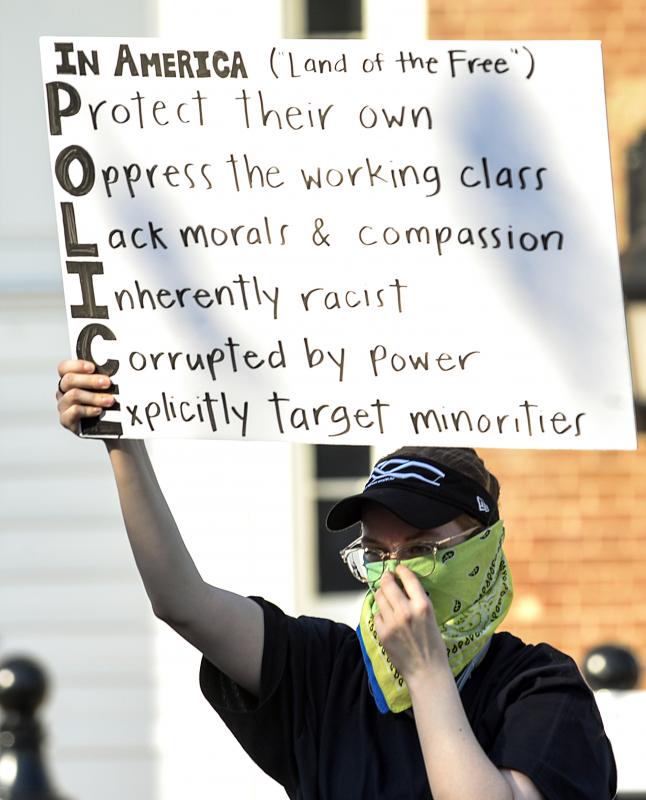 IN AMERICA ("Land of the Free")
Protect their own
Oppress the working class
Lack morals & compassion
Inherently racist
Corrupted by power
Explicitly target minorities